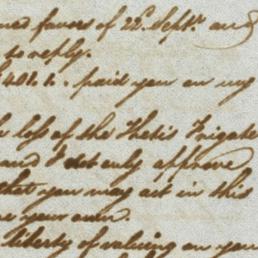 favor of 22d. Septr. and
to reply.
paid you on my
loss of the Thetis Frigate
and I not only approve
that you may act in this
your own.
liberty of valuing on you